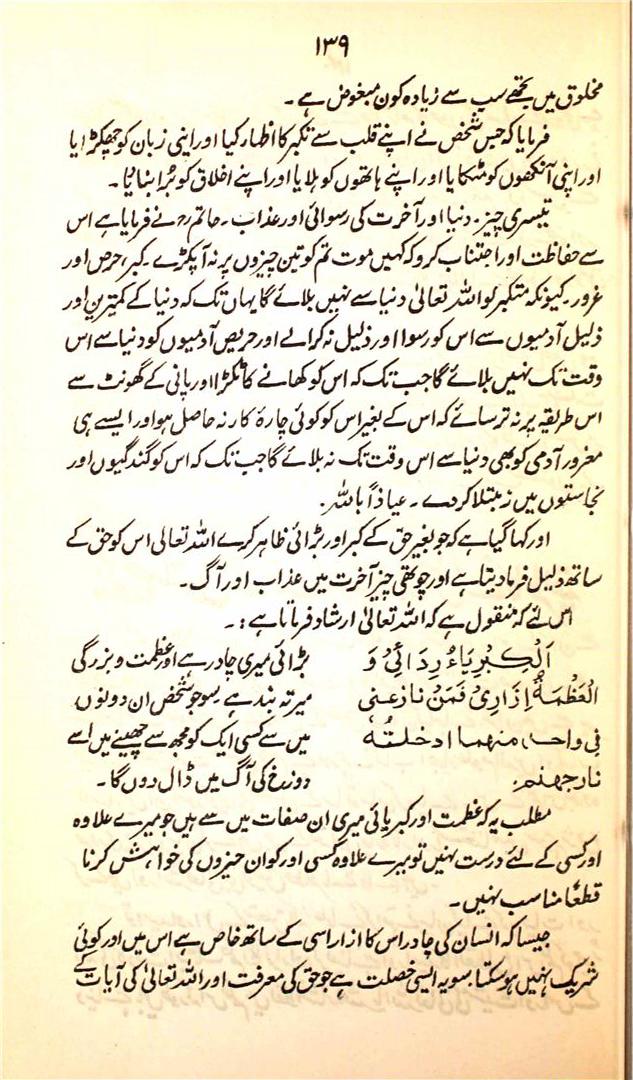 ۱۳۹
مخلوق میں تجھے سب سے زیادہ کون مبغوض ہے۔
فرمایا کہ جس شخص نے اپنے قلب سے تکبر کا اظہار کیا اور اپنی زبان کو
اور اپنی آنکھوں کو مٹکایا اور اپنے ہاتھوں کو ہلایا اور اپنے اخلاق کو بُرا بنا لیا۔
تیسری چیز۔ دنیا اور آخرت کی رسوائی اور عذاب۔ حاتم رح نے فرمایا ہے اس
سے حفاظت اور اجتناب کرو کہ کہیں موت تم کو تین چیزوں پر نہ آ پکڑے۔ کبر، حرص اور
غرور۔ کیونکہ متکبر کو اللہ تعالیٰ دنیا سے نہیں بلائے گا یہاں تک کہ دنیا کے کمترین اور
ذلیل آدمیوں سے اس کو رسوا اور ذلیل نہ کرالے اور حریص آدمیوں کو دنیا سے اس
وقت تک نہیں بلائے گا جب تک کہ اس کو کھانے کا ٹکڑا اور پانی کے گھونٹ سے
اس طریقہ پر نہ ترسائے کہ اس کے بغیر اس کو کوئی چارۂ کار نہ حاصل ہو اور ایسے ہی
مغرور آدمی کو بھی دنیا سے اس وقت تک نہ بلائے گا جب تک کہ اس کو گندگیوں اور
نجاستوں میں نہ مبتلا کر دے۔ عیاذاً باللہ۔
اور کہا گیا ہے کہ جو بغیر حق کے کبر اور بڑائی ظاہر کرے اللہ تعالی اس کو حق کے
ساتھ ذلیل فرما دیتا ہے اور چوتھی چیز آخرت میں عذاب اور آگ۔
اس لئے کہ منقول ہے کہ اللہ تعالیٰ ارشاد فرماتا ہے :۔
اَلْکِبْرِیَاءُ رِدَائِیْ وَ بڑائی میری چادر ہے اور عظمت و بزرگی
الْعَظْمَۃُ اِزَارِیْ فَمَنْ نازعنی میرا تہ بند ہے۔ سو جو شخص ان دونوں
فی واحد منھما ادخلتہ میں سے کسی ایک کو مجھ سے چھینے میں اسے
نار جھنم۔ دوزخ کی آگ میں ڈال دوں گا۔
مطلب یہ کہ عظمت اور کبریائی میری ان صفات میں سے ہیں جو میرے علاوہ
اور کسی کے لئے درست نہیں تو میرے علاوہ کسی اور کو ان چیزوں کی خواہش کرنا
قطعًا مناسب نہیں۔
جیسا کہ انسان کی چادر اس کا ازار اسی کے ساتھ خاص ہے اس میں اور کوئی
شریک نہیں ہو سکتا۔ سو یہ ایسی خصلت ہے جو حق کی معرفت اور اللہ تعالیٰ کی آیات کے